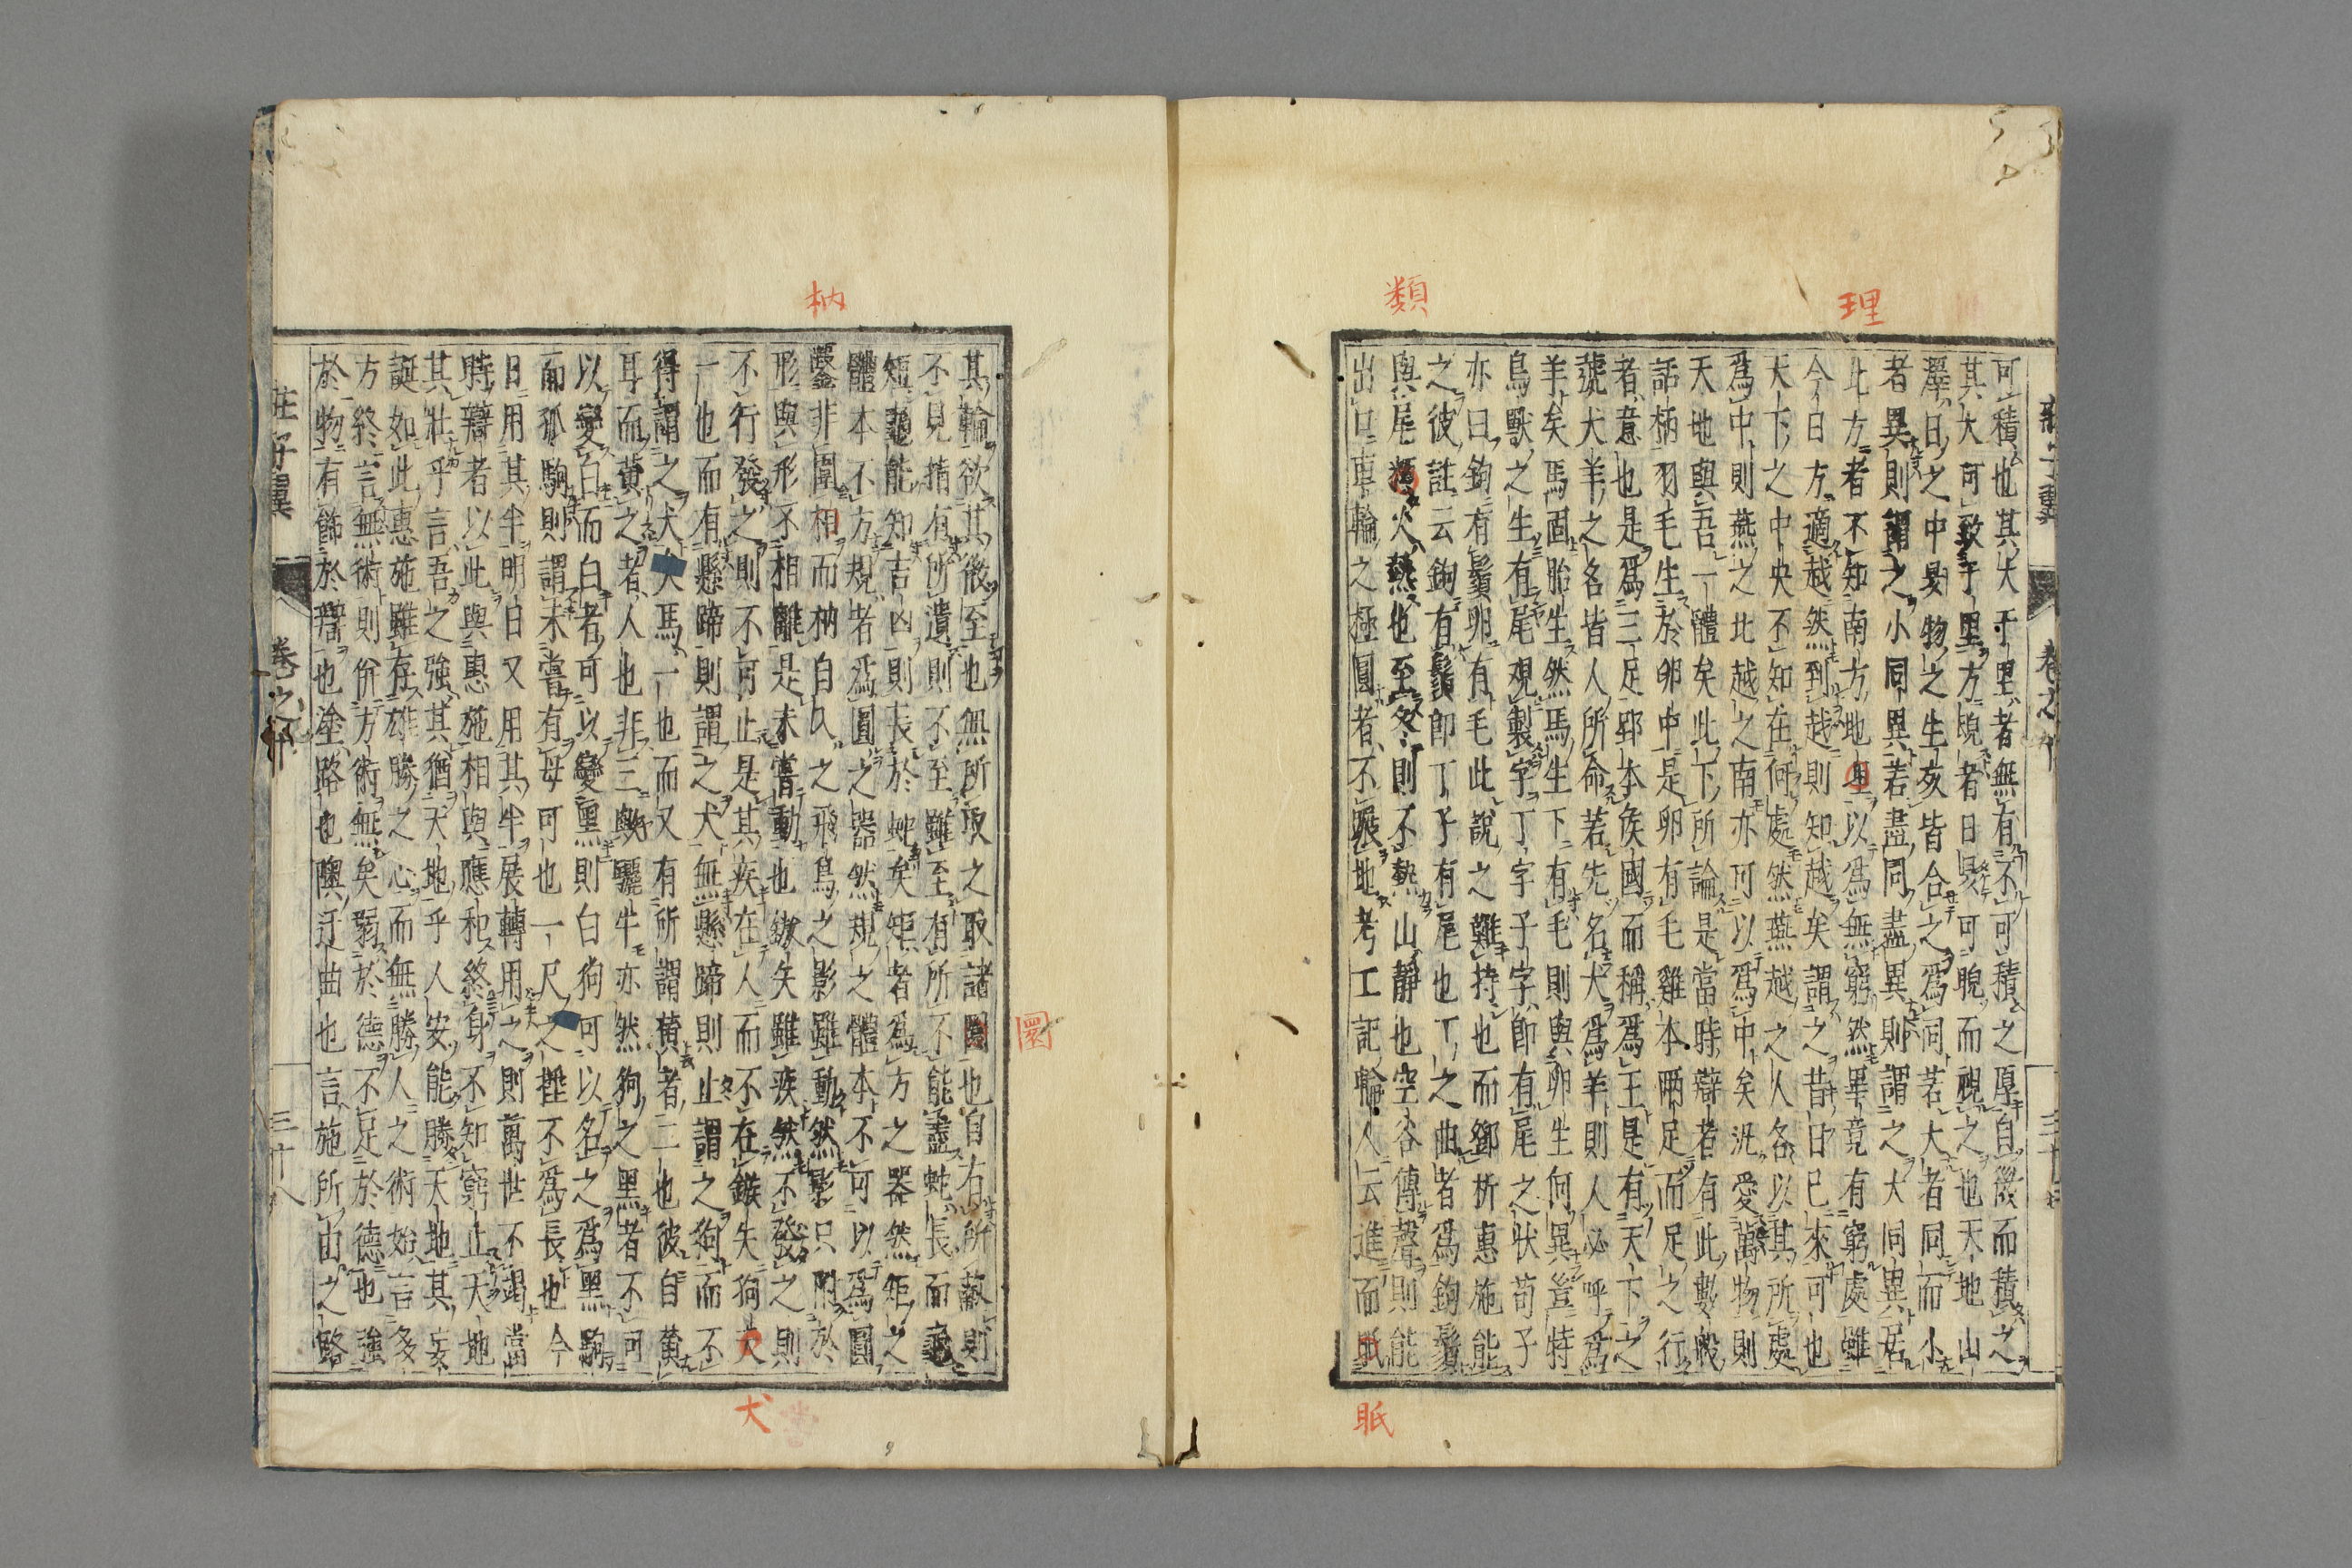 理
類
可積也其大千里者無有不可積之厚自微而積之
其大可致千里方睨者日昃可睨而視之也天地山
澤日之中昃物之生亥皆合之爲同若大者同而小
者異則謂之小同異若盡同盡異則謂之大同異居
此方者不知南方地里以爲無窮然畢竟有窮處雖
今日方適越然到越則知越矣謂之昔日已來可也
天下之中央不知在何處然燕越之人各以其所處
爲中則燕之北越之南亦可以爲中矣汎愛萬物則
天地與吾一體矣此下所論是當時辯者有此數般
話柄羽毛生於卵中是卵有毛雞本兩足而足之行
者意也是爲三足郢本侯國而稱爲王是有天下之
號犬羊之名皆人所命若先名犬爲羊則人必呼爲
羊矣馬固胎生然馬生下有毛則與卵生何異豈特
鳥獸之生有尾觀製字丁字子字即有尾之狀荀子
亦曰鉤有鬚卵有毛此說之難持也而鄧析惠施能
之彼註云鉤有鬚即丁子有尾也丁之曲者爲鉤鬚
與尾類火熱也至冬則不熱山靜也空谷傳聲則能
出口車輪之極圓者不輾地考工記輪人云進而眡
眡
莊子翼 卷之八
三十八
枘
圜
其輪欲其微至也無所取之取諸圜也自右所蔽則
不見指有所遺則不至雖至有所不能盡蛇長而龜
短龜能知吉凶則長於蛇矣矩者爲方之器然矩之
體本不方規者爲圓之器然規之體本不可以爲圓
鑿非圍相而枘自久之飛鳥之影雖動然影只附於
形與形不相離是未嘗動也鏃矢雖疾然不發之則
不行發之則不可止是其疾在人而不在鏃矢狗犬
一也而有懸蹄則謂之犬無懸蹄則止謂之狗而不
得謂之犬犬馬一也而又有所謂黃者二也彼自黃
耳而黃之者人也非三與驪牛亦然狗之黑者不可
以變白而白者可以變黑則白狗可以名之爲黑駒
而孤駒則謂未嘗有母可也一尺之捶不爲長也今
日用其半明日又用其半展轉用之則萬世不竭當
時辯者以此與惠施相與應和終身不知窮止天地
其壯乎言吾之強其猶天地乎人安能勝天地其妄
誕如此惠施雖存雄勝之心而無勝人之術始言多
方終言無術則併方術無矣弱於德不足於德也強
於物有飾於辯也塗路也隩迂曲也言施所由之路
犬